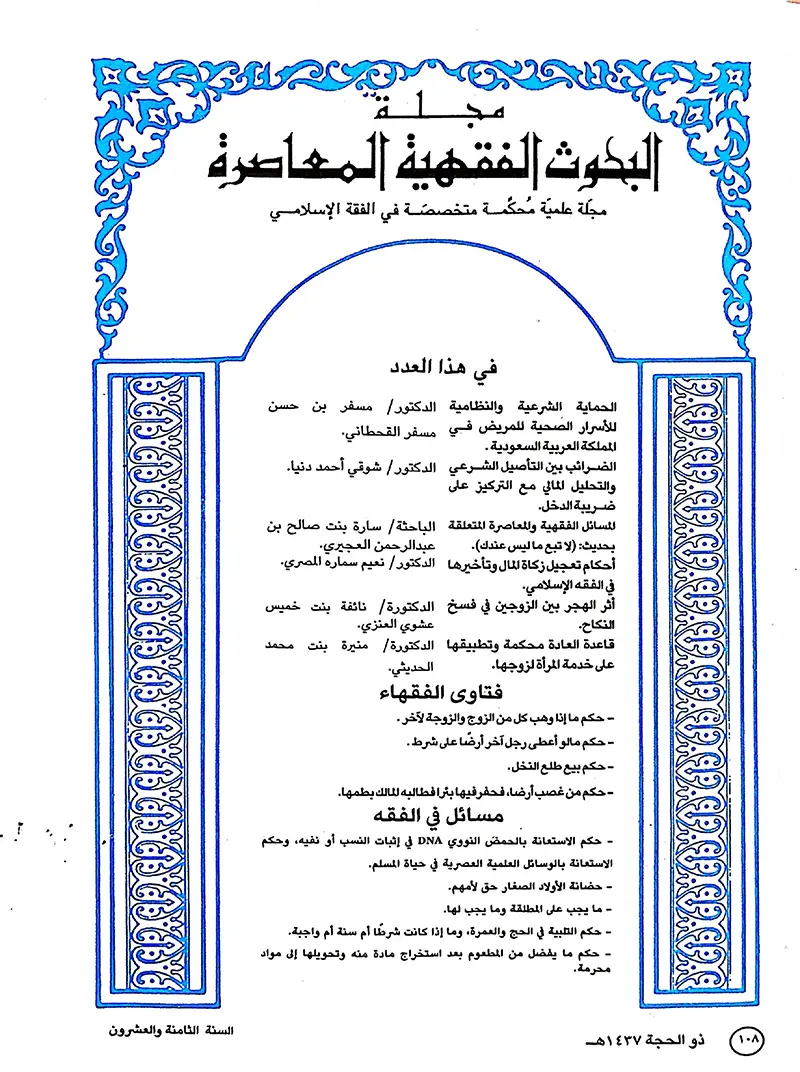 مجلة
البحوث الفقهية المعاصرة
مجلّة علميّة مُحكّمة متخصصّة في الفقة الإسلامي
في هذا العدد
الحماية الشرعية والنظامية الدكتور/ مسفر بن حسن
للأسرار الصحية للمريض في مسفر القحطاني.
المملكة العربية السعودية.
الضرائب بين التأصيل الشرعي الدكتور/ شوقي أحمد دنيا.
والتحليل المالي مع التركيز على
ضريبة الدخل.
المسائل الفقهية والمعاصرة المتعلقة الباحثة/ سارة بنت صالح بن
بحديث: (لا تبع ما ليس عندك). عبدالرحمن العجيري.
أحكام تعجيل زكاة المال وتأخيرها الدكتور/ نعيم سماره المصري.
في الفقه الإسلامي.
أثر الهجر بين الزوجين في فسخ الدكتورة/ نائفة بنت خميس
النكاح. عشوي العنزي.
قاعدة العادة محكمة وتطبيقها الدكتورة/ منيرة بنت محمد
على خدمة المرأة لزوجها. الحديثي.
فتاوى الفقهاء
- حكم ما إذا وهب كل من الزوج والزوجة لآخر.
- حكم مالو أعطى رجل آخر أرضًا على شرط.
- حكم بيع طلع النخل.
- حكم من غصب أرضا، فحفر فيها بئرا فطالبه المالك بطمها.
مسائل في الفقه
- حكم الاستعانة بالحمض النووي DNA في إثبات النسب أو نفيه، وحكم
الاستعانة بالوسائل العلمية العصرية في حياة المسلم.
- حضانة الأولاد الصغار حق لأمهم.
- ما يجب على المطلقة وما يجب لها.
- حكم التلبية في الحج والعمرة، وما إذا كانت شرطًا أم سنة أم واجبة.
- حكم ما يفضل من المطعوم بعد استخراج مادة منه وتحويلها إلى مواد
محرمة.
١٠٨ ذو الحجة ١٤٣٧هـ السنة الثامنة والعشرون